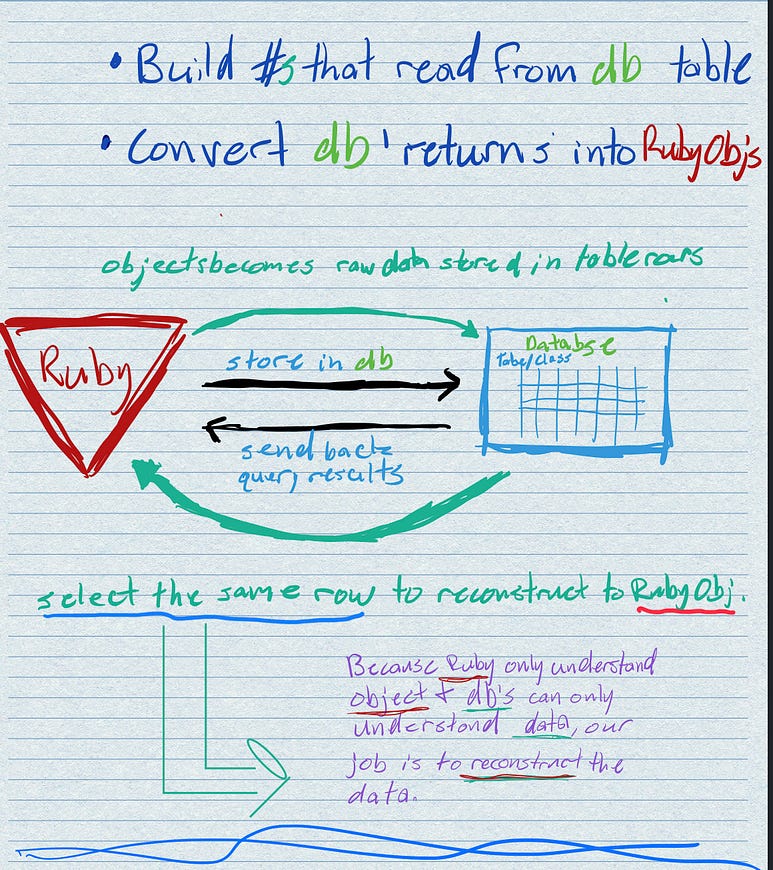 • Build #s that read from db table
• Convert db' returns into RubyObjs
objects becomes raw data stored in table rows
Ruby
store in db
send back
query results
Databse
Tabe/class
select the same row to reconstruct to RubyObj.
Because Ruby only understand
object & db's can only
understand data, our
job is to reconstruct the
data.